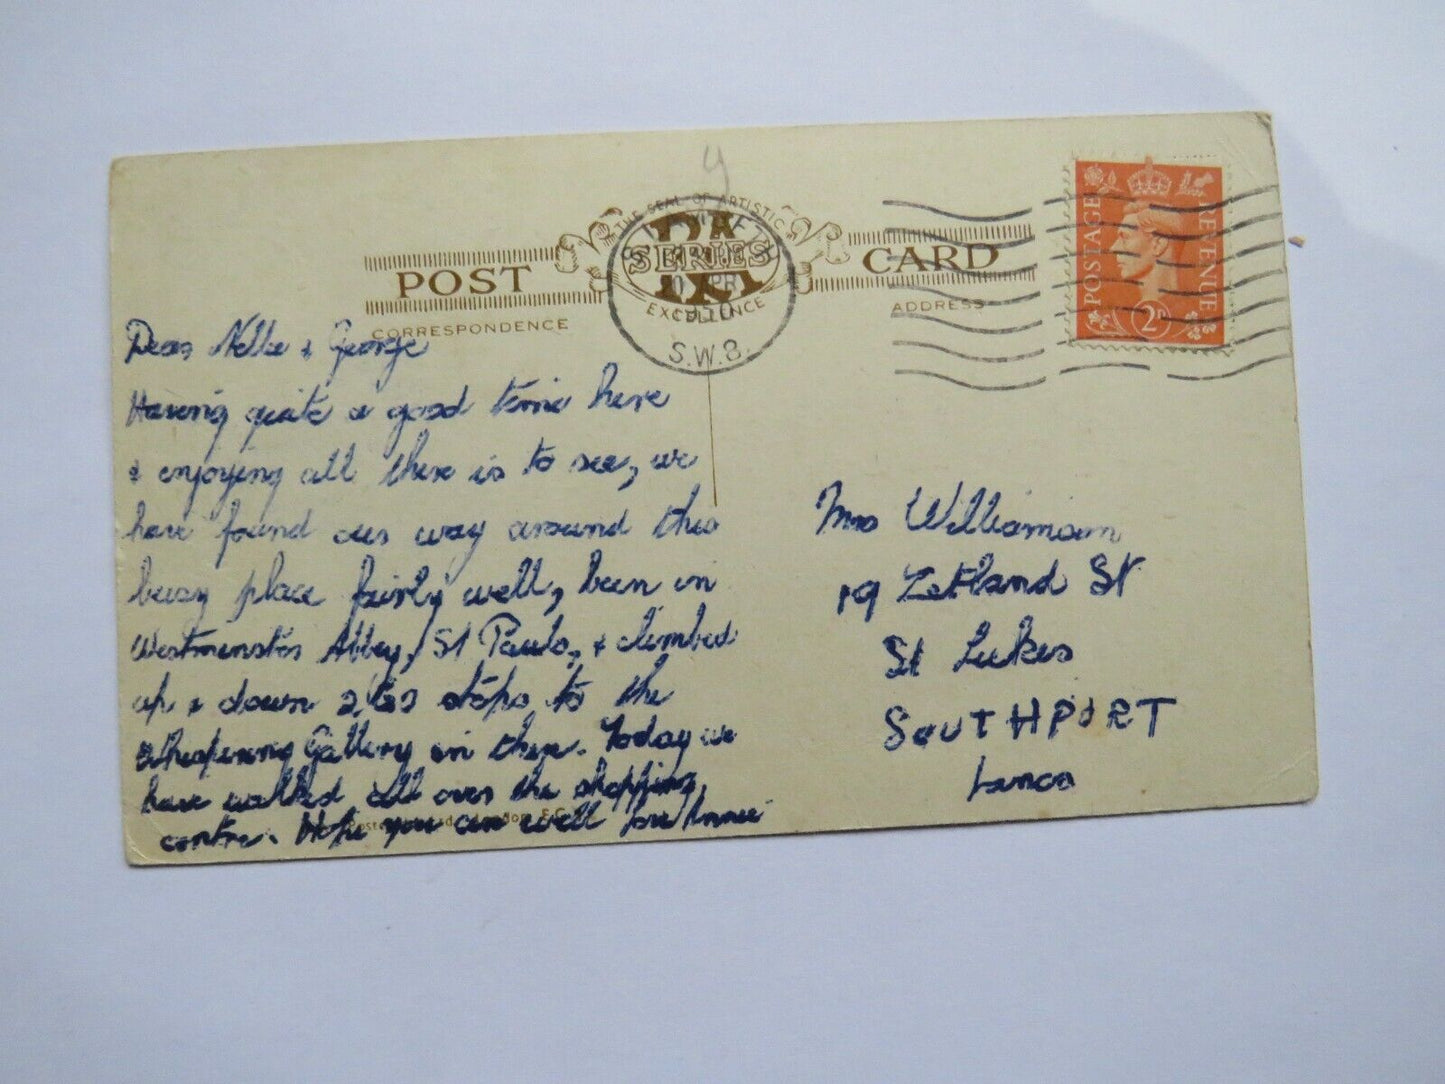 y
THE SEAL OF ARTISTIC
SERIES
EXCELLENCE
APR
1950
S.W.8.
POST CARD
CORRESPONDENCE
ADDRESS
POSTAGE REVENUE
2D
Dear Nellie & George
Having quite a good time here
& enjoying all there is to see, we
have found our way around this
busy place fairly well, been in
Westminster Abbey, St Pauls, & climbed
up & down steps to the
Whispering Gallery in there. Today we
have walked all over the shopping
centre. Hope you are well love Annie
Mrs Williamson
19 Zetland St
St Lukes
SOUTHPORT
Lancs